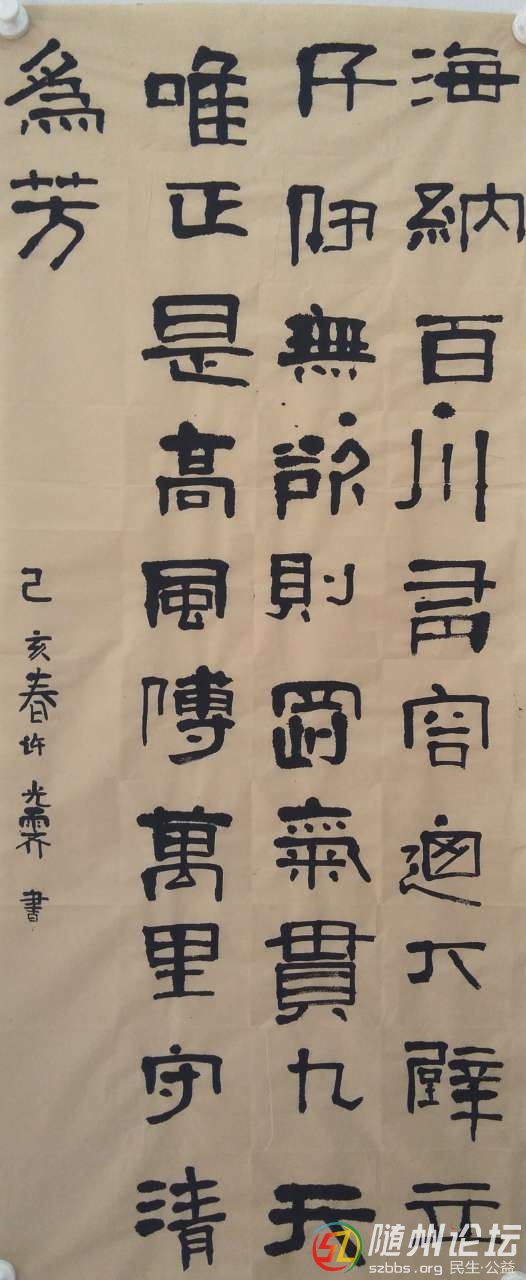 海納百川有容迺大壁立
千仞無欲則剛氣貫九天
唯正是高風傳萬里守清
爲芳
己亥春许光霁書
随州论坛
szbbs.org 民生·公益